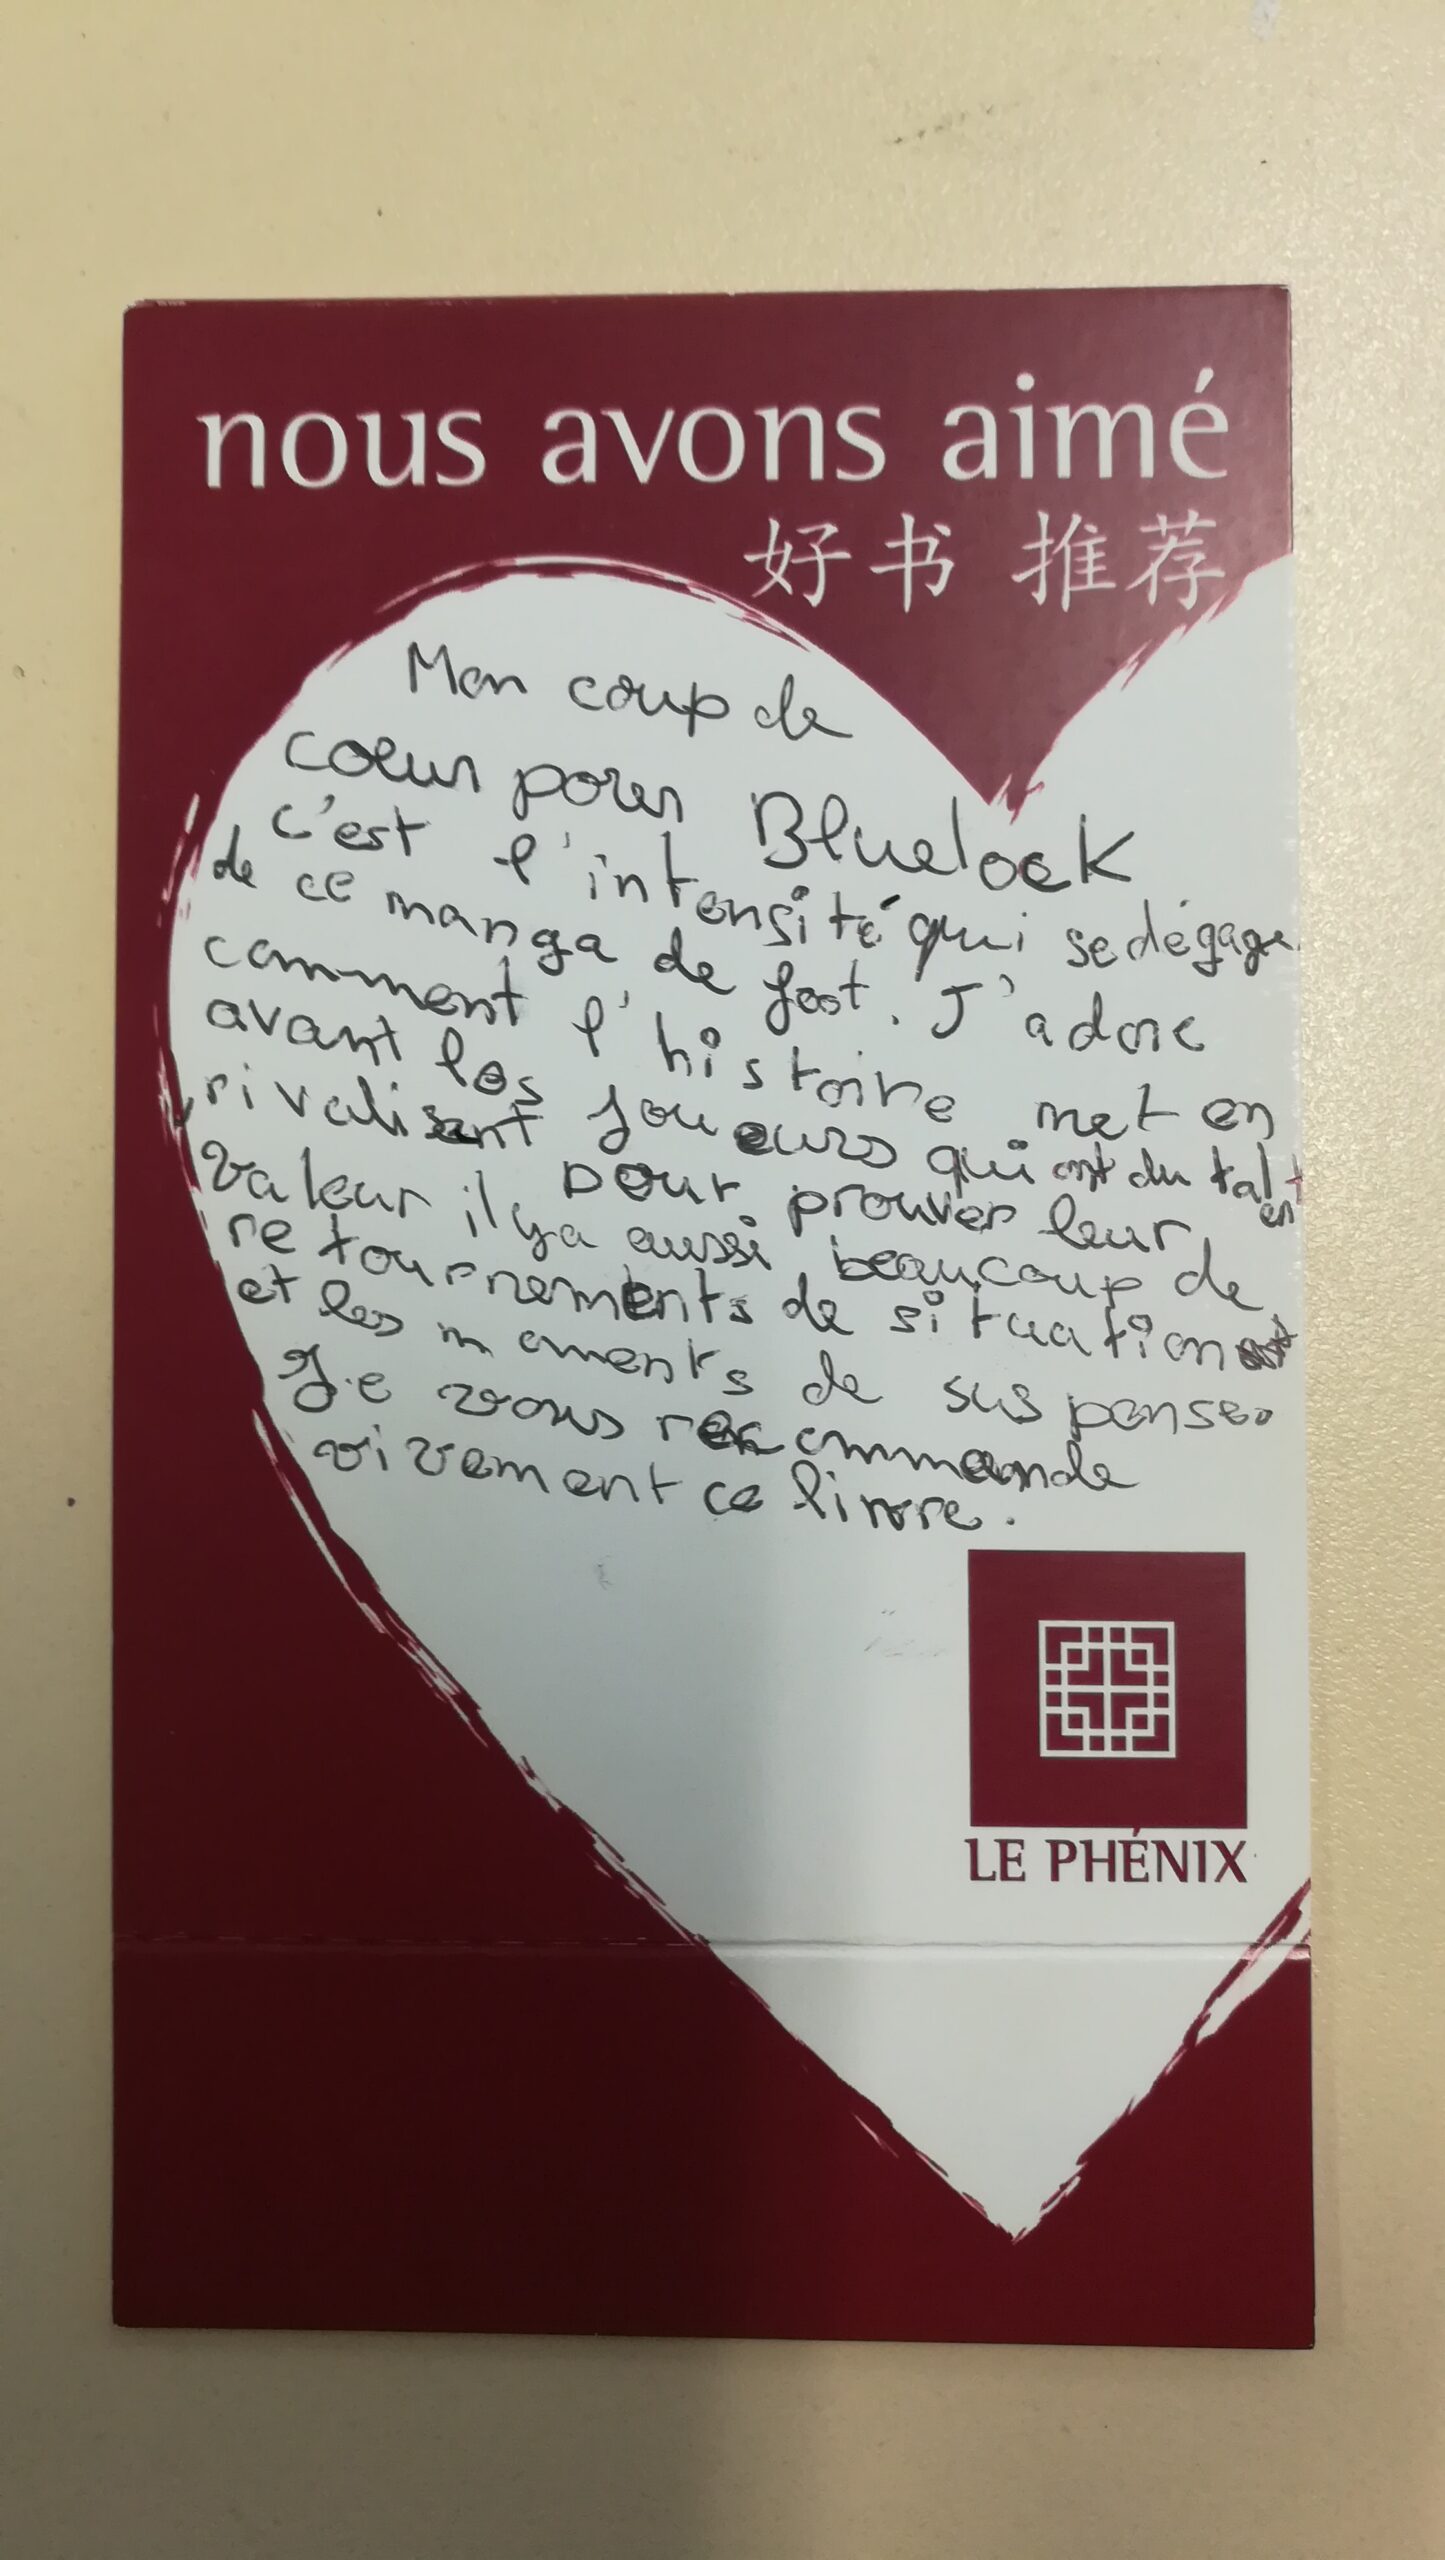 nous avons aimé
好书 推荐
Mon coup de
coeur pour Bluelock
c'est l'intensité qui se dégage
de ce manga de foot. J'adore
comment l'histoire met en
avant les joueurs qui ont du talent
rivalisent pour prouver leur
valeur il y a aussi beaucoup de
retournements de situation
et les moments de suspense.
Je vous recommande
vivement ce livre.
LE PHÉNIX